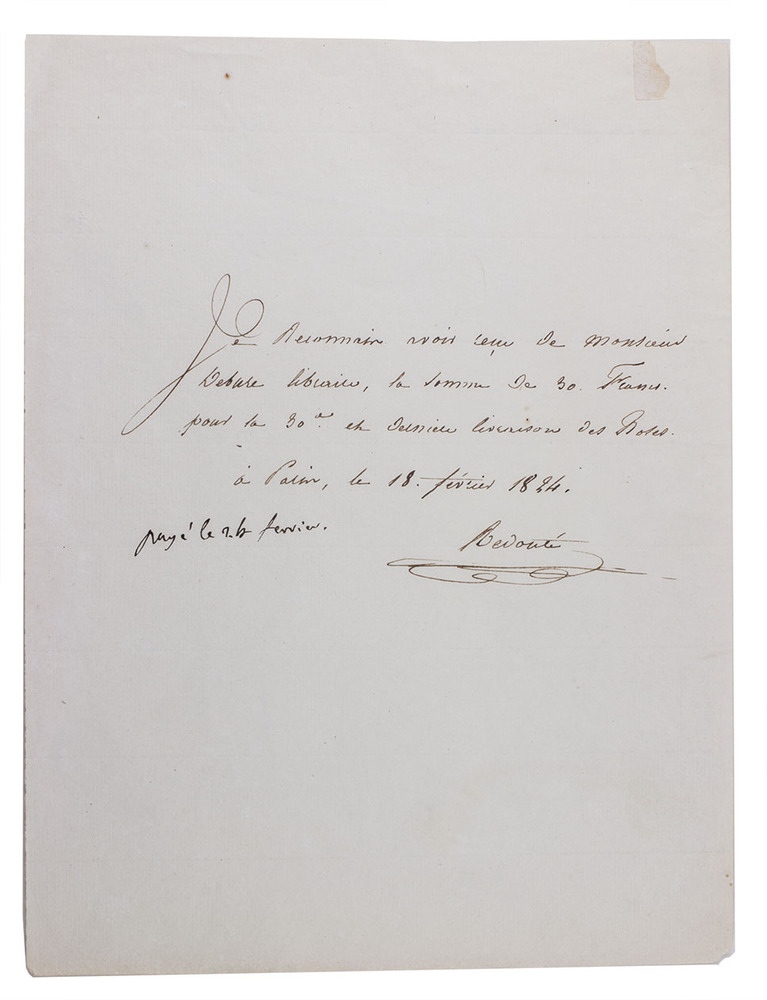 Je Reconnais avoir reçu de Monsieur
Debure libraire, la somme de 30. Francs.
pour la 30e. et derniere livraison des Roses.
à Paris, le 18. février 1824.
payé le 24 fevrier.
Redouté